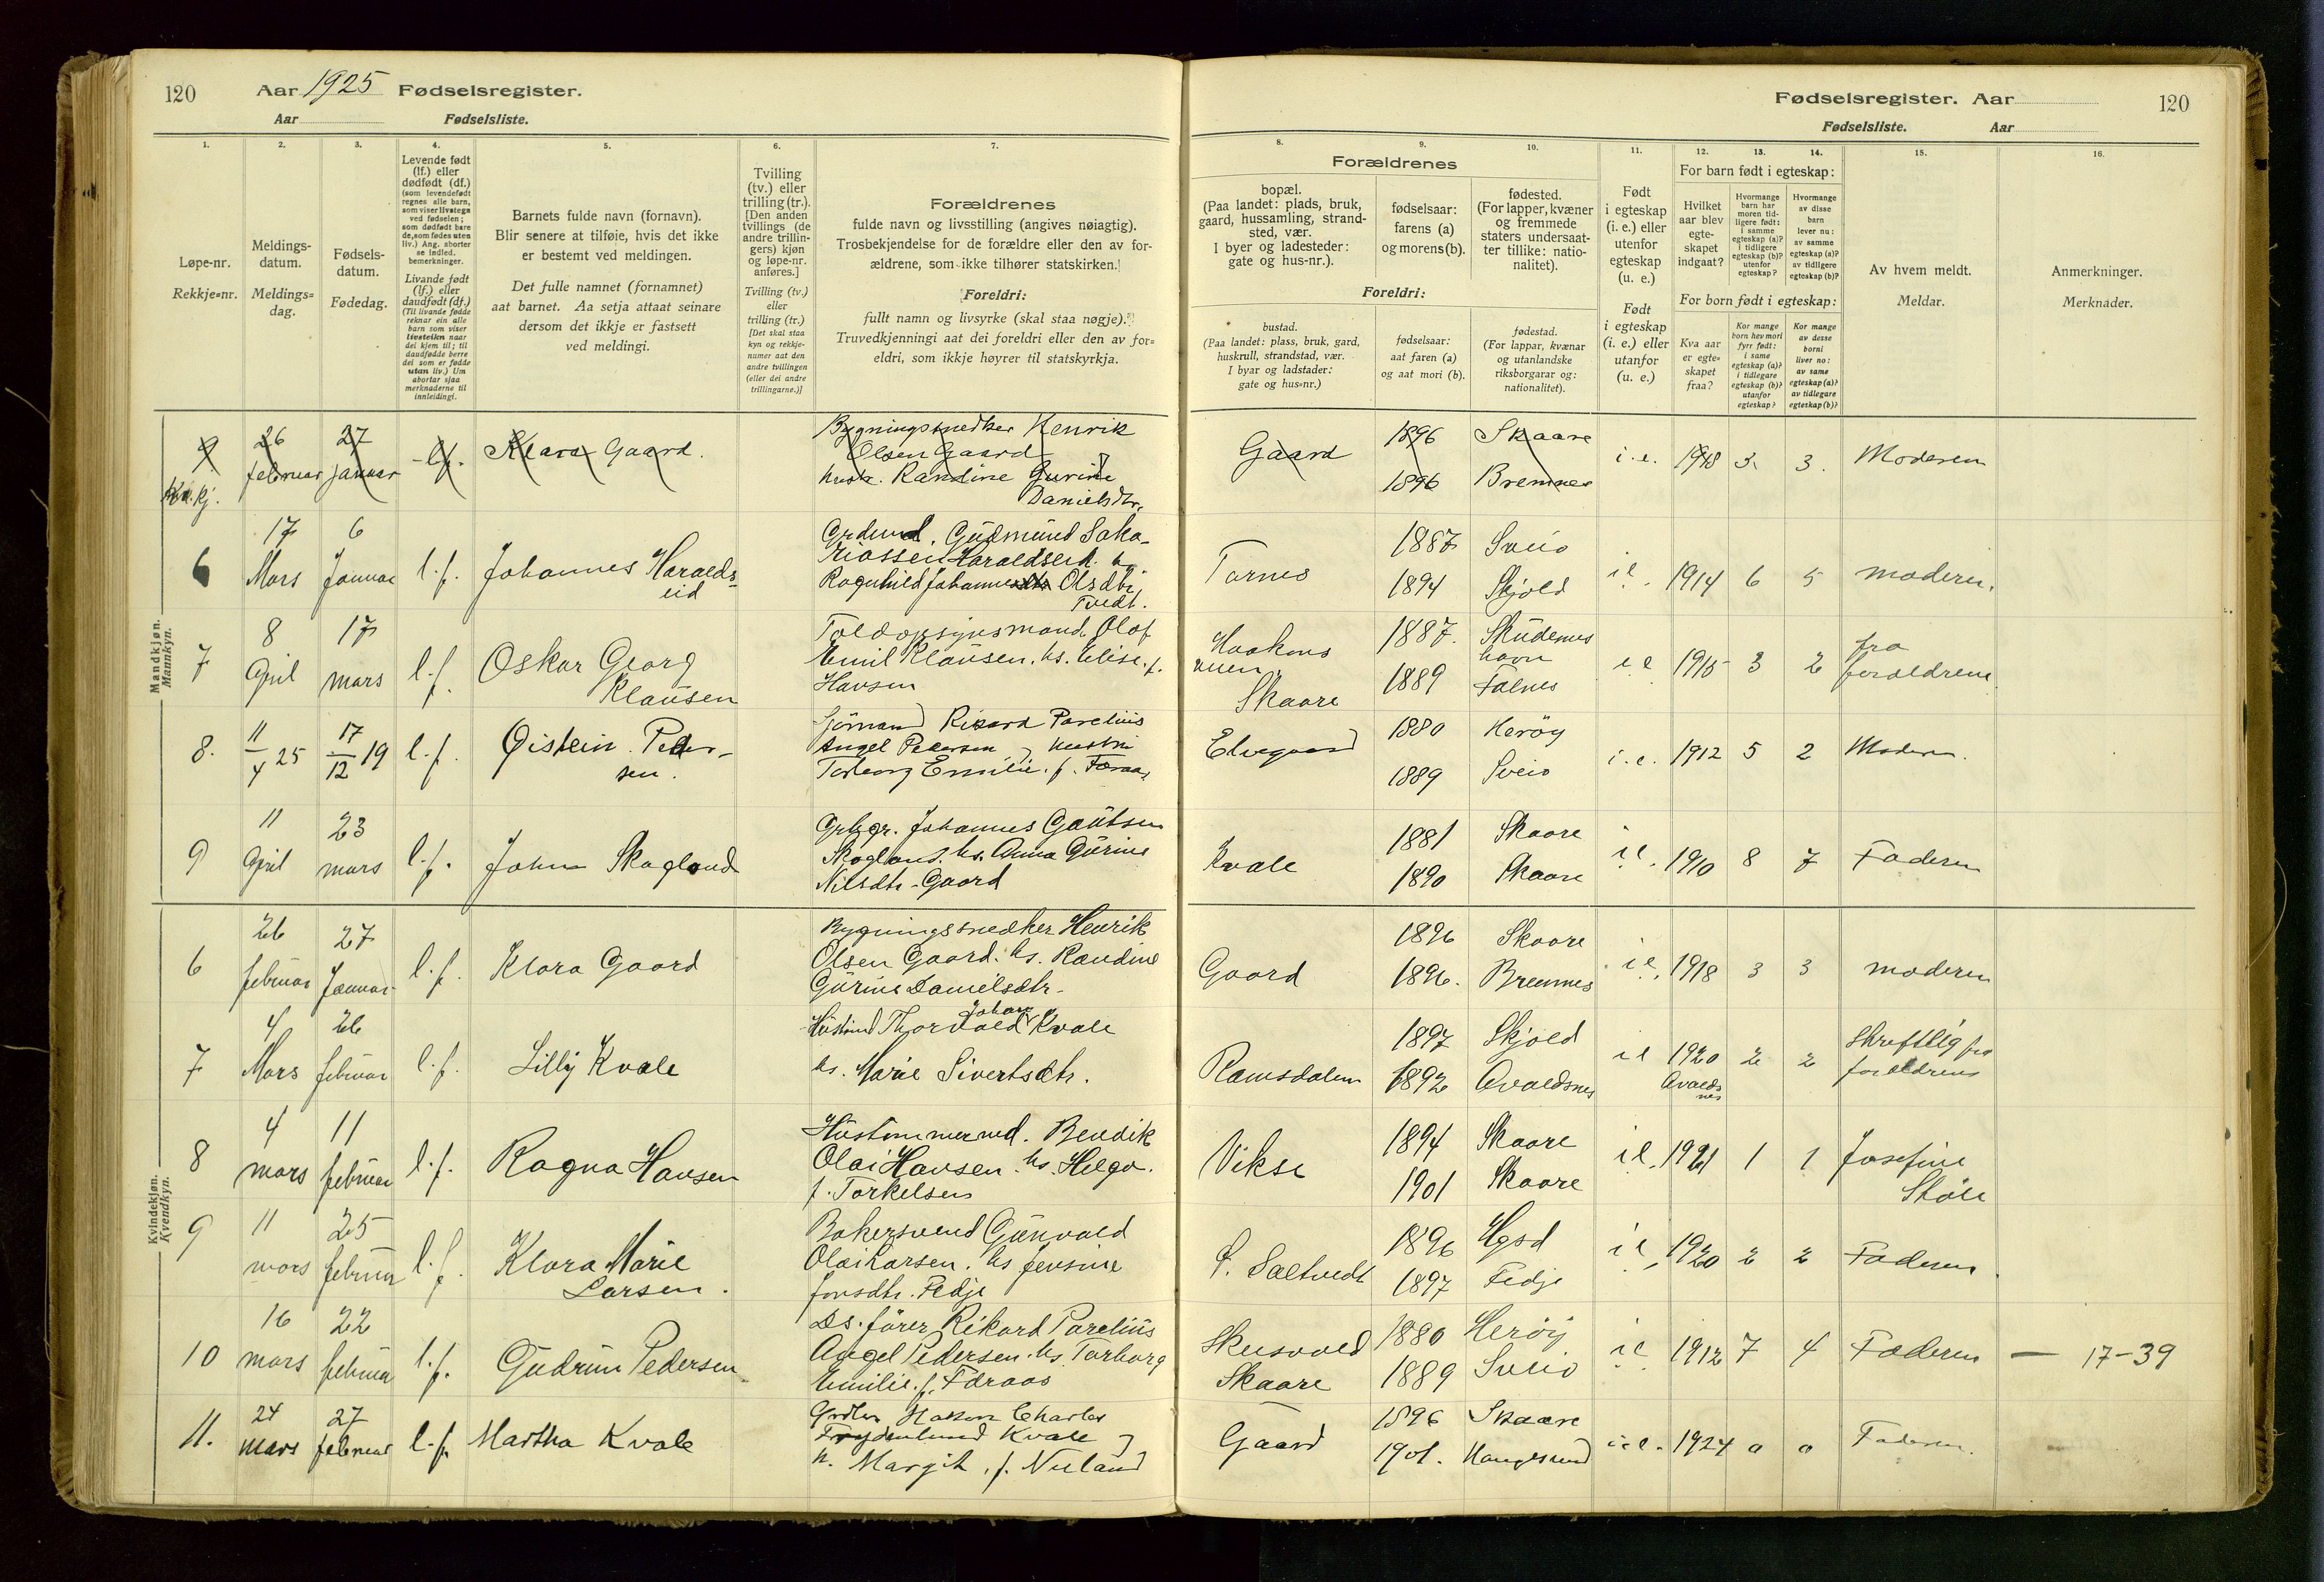 120
Aar 1925 Fødselsregister.
Aar Fødselsliste.
1.
2.
3.
4.
5.
6.
7.
Løpe-nr.
Rekkje=nr.
Meldings-
datum.
Meldings=
dag.
Fødsels-
datum.
Fødedag.
Levende født
(lf.) eller
dødfødt (df.)
(som levendefødt
regnes alle barn,
som viser livstegn
ved fødselen;
som dødfødt bare
de, som fødes uten
liv.) Ang. aborter
se indled.
bemerkninger.
Livande født
(lf.) eller
daudfødt (df.)
(Til livande fødde
reknar ein alle
born som viser
livsteikn naar
dei kjem til; til
daudfødde berre
dei som er fødde
utan liv.) Um
abortar sjaa
merknaderne til
innleidingi.
Barnets fulde navn (fornavn).
Blir senere at tilføie, hvis det ikke
er bestemt ved meldingen.
Det fulle namnet (fornamnet)
aat barnet. Aa setja attaat seinare
dersom det ikkje er fastsett
ved meldingi.
Tvilling
(tv.) eller
trilling (tr.).
[Den anden
tvillings (de
andre trillin-
gers) kjøn
og løpe-nr.
anføres.]
Tvilling (tv.)
eller
trilling (tr.)
[Det skal staa
kyn og rekkje-
numer aat den
andre tvillingen
(eller dei andre
trillingarne.)]
Forældrenes
fulde navn og livsstilling (angives nøiagtig).
Trosbekjendelse for de forældre eller den av for-
ældrene, som ikke tilhører statskirken.
Foreldri:
fullt namn og livsyrke (skal staa nøgje).
Truvedkjenningi aat dei foreldri eller den av for=
eldri, som ikkje høyrer til statskyrkja.
Fødselsregister. Aar 120
Fødselsliste. Aar
8.
9.
10.
11.
12.
13.
14.
15.
16.
Forældrenes
bopæl.
(Paa landet: plads, bruk,
gaard, hussamling, strand-
sted, vær.
I byer og ladesteder:
gate og hus-nr.).
fødselsaar:
farens (a)
og morens (b).
fødested.
(For lapper, kvæner
og fremmede
staters undersaat-
ter tillike: natio-
nalitet).
Foreldri:
bustad.
(Paa landet: plass, bruk, gard,
huskrull, strandstad, vær.
I byar og ladstader:
gate og hus=nr.)
fødselsaar:
aat faren (a)
og aat mori (b).
fødestad.
(For lappar, kvænar
og utanlandske
riksborgarar og:
nationalitet).
Født
i egteskap
(i. e.) eller
utenfor
egteskap
(u. e.)
Født
i egteskap
(i. e.) eller
utanfor
(u. e.)
For barn født i egteskap:
Hvilket
aar blev
egte-
skapet
indgaat?
Hvormange
barn har
moren tid-
ligere født:
i samme
egteskap (a)?
i tidligere
egteskap (b)?
utenfor
egteskap?
Hvormange
av disse
barn
lever nu:
av samme
egteskap (a)?
av tidligere
egteskap (b)?
For born født i egteskap:
Kva aar
er egte=
skapet
fraa?
Kor mange
born hev mori
fyrr født:
i same
egteskap (a)?
i tidlegare
egteskap (b)?
utanfor
egteskap?
Kor mange
av desse
borni
liver no:
av same
egteskap (a)?
av tidlegare
egteskap (b)?
Av hvem meldt.
Meldar.
Anmerkninger.
Merknader.
Mandkjøn.
Mannkyn.
9 26 februar 27 januar l.f. Klara Gaard.
Bygningssnedker Henrik
Olsen Gaard
hustr. Randine Gurine
Danielsdtr.
Gaard 1896 Skaare i.e. 1918 3. 3. Moderen
1896 Bremnes
Kv.kj.
6 17 Mars 6 Januar l.f. Johannes Haralds-
eid
Gudmund Saka-
riassen Haraldseid. hs
Ragnhild Johannesdtr Olsdtr
Tvedt.
Tornes 1887 Sveio i.e. 1914 6 5 moderen.
1894 Skjold
7 8 April 17 mars l.f. Oskar Georg
Klausen
Toldopsynsmand Olaf
Emil Klausen. hs. Elise. f.
Hansen
Haakons
Skaare
1887. Skudenes
havn
1889 Falnes
i e 1915 3 2 fra
foraldrene
8. 11/4 25 17/12 19 l.f. Øistein Peder-
sen.
Sjömand Rikard Parelius
Angel Pedersen, hustru
Torborg Emilie. f. Færaas
1880 Herøy
1889 Sveio
i.e. 1912 5 2 Moderen.
9 11 April 23 mars l.f. John Skogland
Johannes Gautsen
Skogland. hs. Anna Gurine
Nilsdtr. Gaard
Kvale 1881 Skaare i.e. 1910 8 7 Faderen
1890 Skaare
Kvindekjøn.
Kvendkyn.
6 26 februar 27 Januar l.f. Klara Gaard
Bygningssnedker Henrik
Olsen Gaard. hs. Randine
Gurine Danielsdtr.
Gaard 1896 Skaare i.e. 1918 3 3 moderen
1896. Bremnes
7 4 Mars 26 februar l.f. Lilly Kvale
Johan
Thorvald Kvale
hs. Marie Sivertsdtr.
Ramsdalen 1897 Skjold i e 1920 2 2 skriftlig fra
1892 Avaldsnes Avalds
nes foreldrene
8 4 mars 11 februar l.f. Ragna Hansen
Hustømmermd. Bendik
Olai Hansen. hs. Helga.
f. Torkelsen
Vikse 1894 Skaare i.e. 1921 1 1 Josefine
1901 Skaare Støle
9 11 mars 25 februar l.f. Klara Marie
Larsen.
Bakersvend Gunvald
Olai Larsen. hs Jensine
Jonsdtr. Fedje
S. Saltvedt 1896 i.e. 1920 2 2 Faderen
1897 Fedje
10 16 mars 22 februar l.f. Gudrun Pedersen
Ds. fører Rikard Parelius
Angel Pedersen. hs. Torborg
Emilie. f. Færaas
Skeisvold
Skaare
1880 Herøy
1889 Sveio
i e 1912 7 4 Faderen — 17-39
11. 24 mars 27 februar l.f. Martha Kvale
Hakon Charles
Frydenlund Kvale
h. Margit. f. Nuland
Gaard 1896 Skaare i.e. 1924 0 0 Faderen.
1901. Haugesund